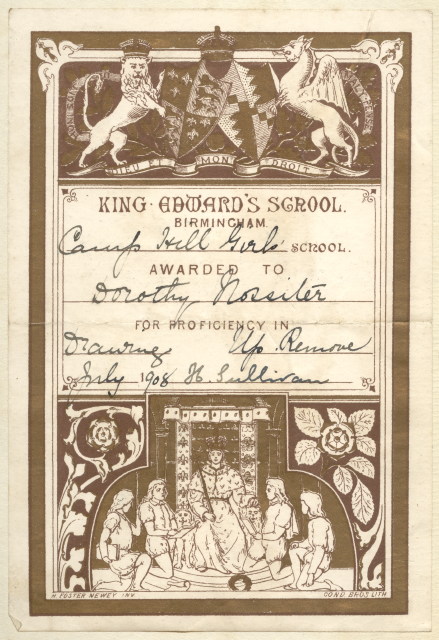 DIEU ET MON DROIT
KING EDWARD'S SCHOOL.
BIRMINGHAM
Camp Hill Girls' SCHOOL.
AWARDED TO
Dorothy Nossiter
FOR PROFICIENCY IN
Drawing Up Remove
July 1908 H. Sullivan
H. FOSTER NEWEY INV. COND BROS LITH